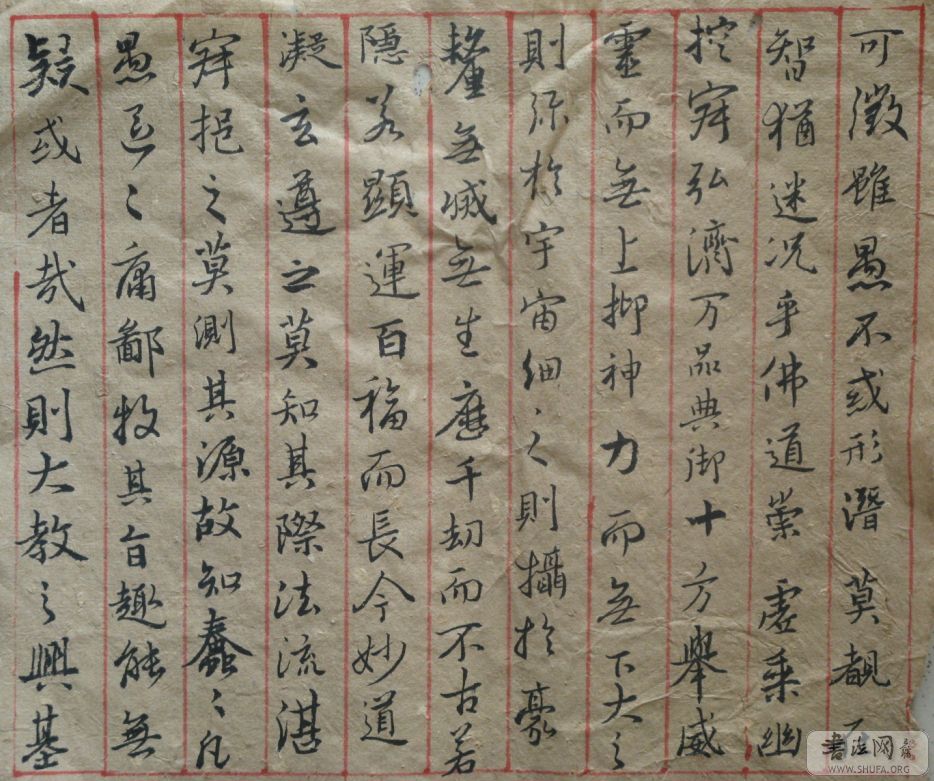 可徵雖愚不或形潛莫覩
智猶迷況乎佛道崇虛乘幽
控寂弘濟万品典御十方舉威
靈而無上抑神力而無下大之
則弥於宇宙細之則攝於豪
釐無滅無生歷千劫而不古若
隱若顯運百福而長今妙道
凝玄遵之莫知其際法流湛
寂挹之莫測其源故知蠢々凡
愚區々庸鄙投其旨趣能無
疑或者哉然則大教之興基
書法网
WWW.SHUFA.ORG